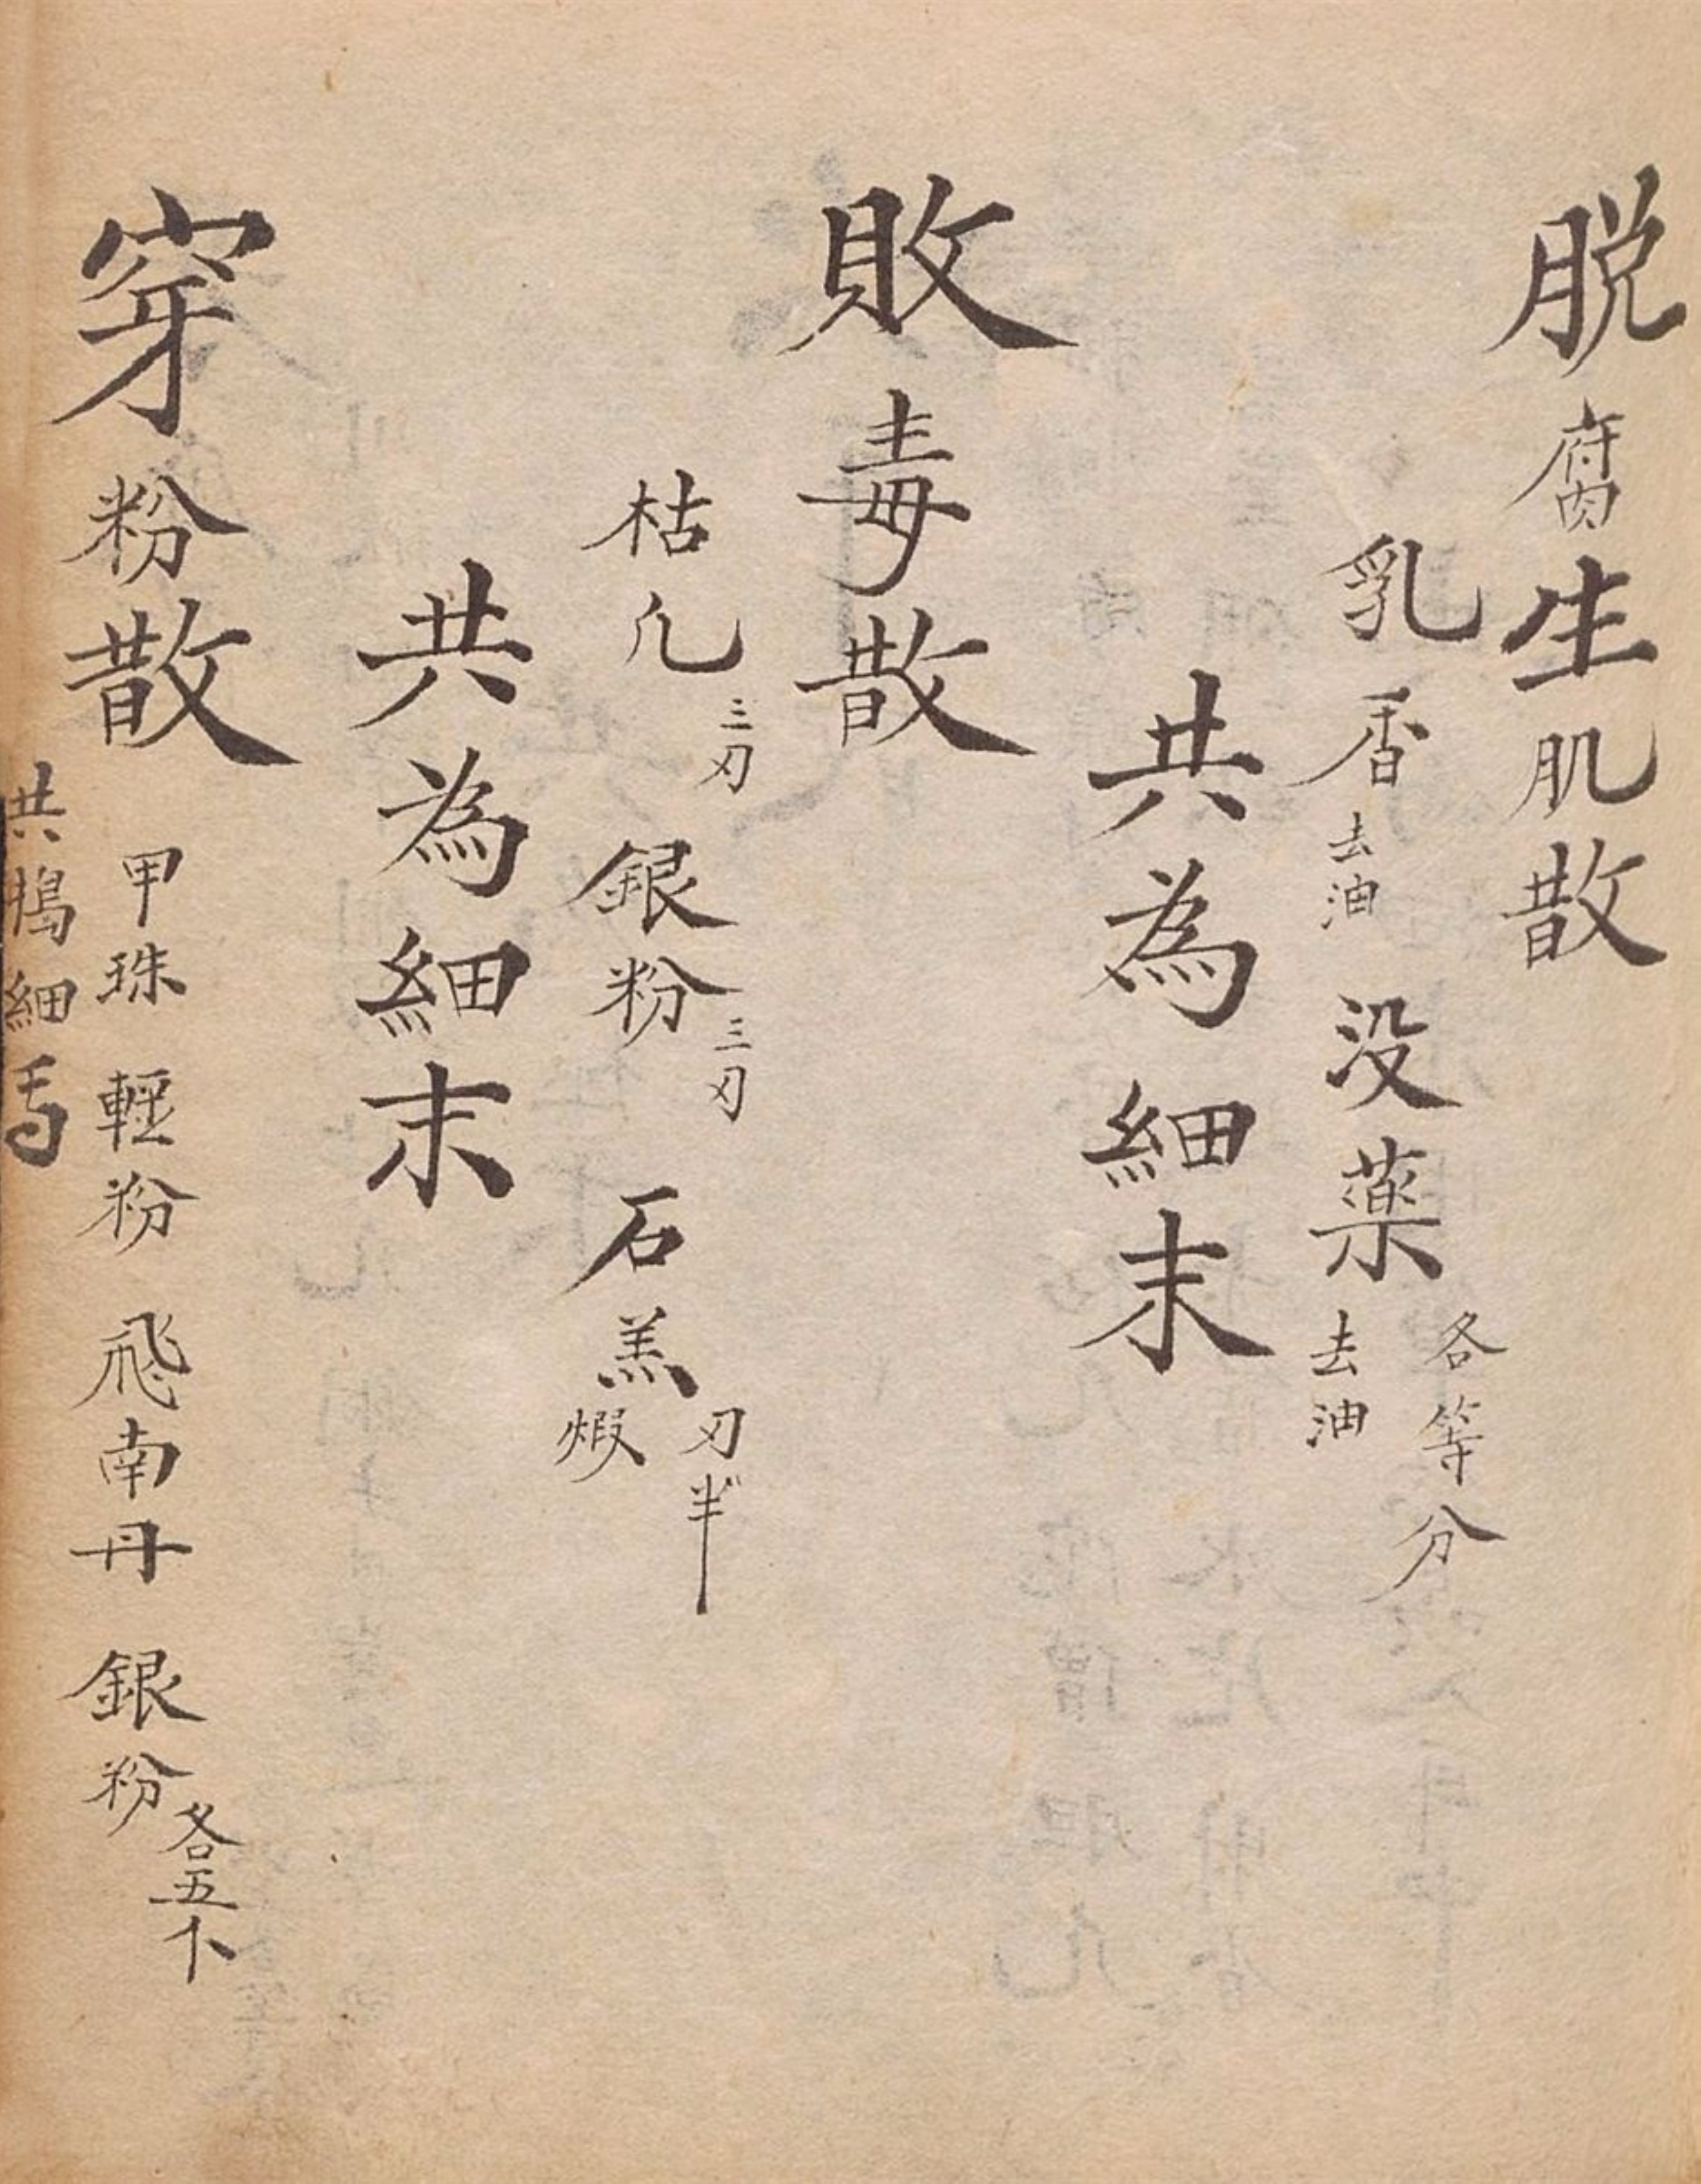 脱腐生肌散
乳香去油 没薬去油 各等分
共為細末
敗毒散
枯凡三刃 銀粉三刃 石羔煆 刃半
共為細末
穿粉散 甲珠 輕粉 飛南丹 銀粉各五卜
共搗細